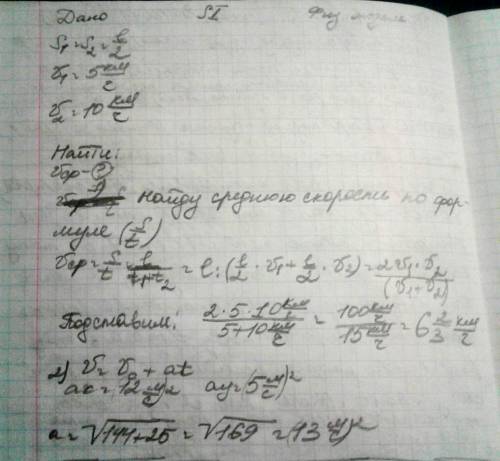 Дано SI Физ
S₁=S₂=l/2
v₁=5 км/ч
v₂=10 км/ч
Найти:
vср-?
Найду среднюю скорость по фор-
муле (S/t)
vср=S/t=l/(t₁+t₂)=l:(l/2·v₁+l/2·v₂)=2v₁·v₂/(v₁+v₂)
Подставим: 2·5·10 км/ч / 5+10 км/ч = 100 км/ч / 15 км/ч = 6 2/3 км/ч
2) v=v₀+at
ax=12(м/с)² ay=(5 м/с)²
a=√144+25=√169=(13 м/с)²